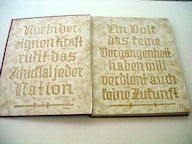 Nur in der
eignen Kraft
ruht das
Schicksal jeder
Nation
Ein Volk
das keine
Vergangenheit
haben will
verdient auch
keine Zukunft